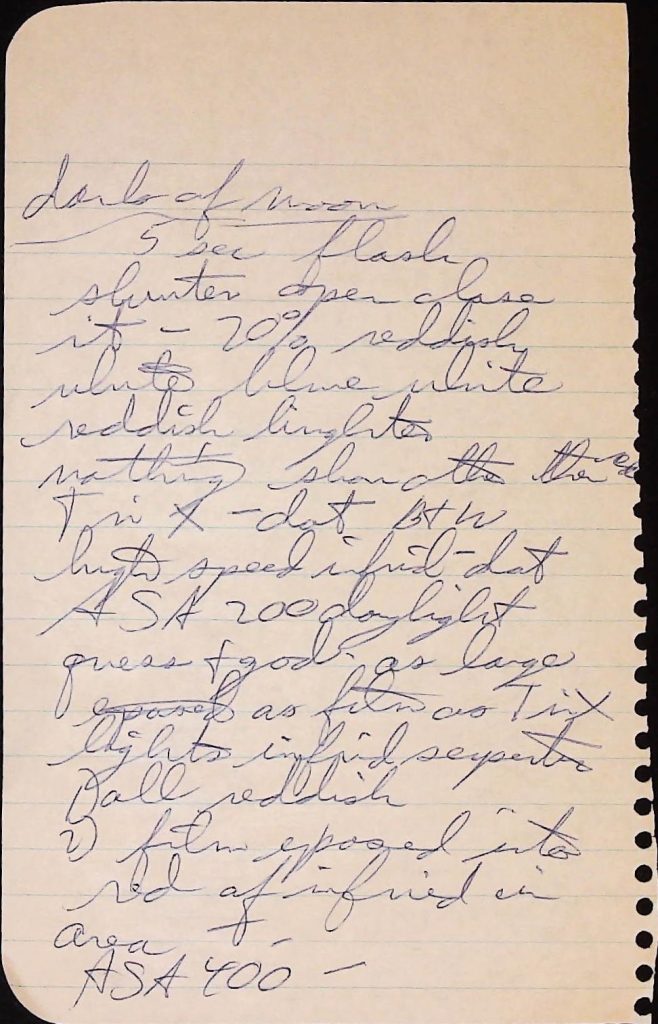 dark of moon
5 sec flash
shutter open close
it - 20% reddish
white blue white
reddish
nothing the
Tri X - dot B+W
high speed infrid - dat
ASA 200 daylight
guess + god. as large
eposed as film as Tri X
lights infrid
1) all reddish
2) film eposed into
red of infried in
area
ASA 400 -